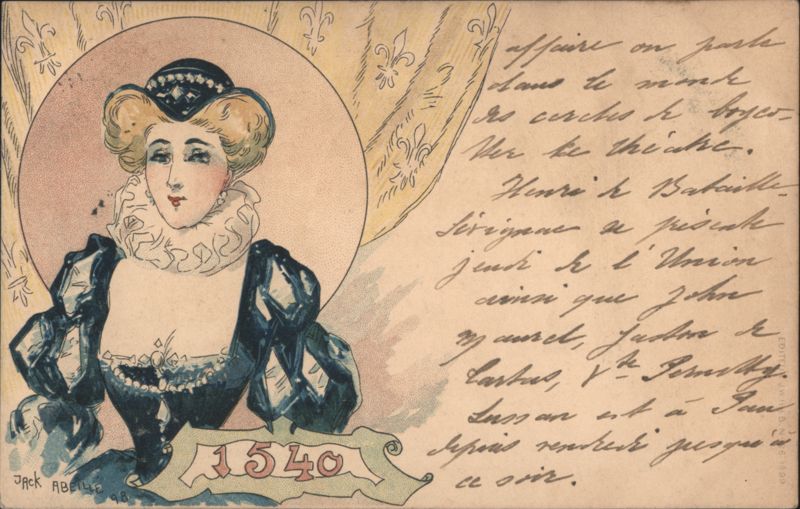 affaire on parle
dans le monde
des cercles de boyco-
tter le théâtre.
Henri de Bataille-
Sérignac se présente
jeudi de l'Union
ainsi que John
Maurel, Gaston de
Carbas, Vte Pernetty.
Lussan est à Pau
depuis vendredi jusqu'à
ce soir.
1540
JACK ABEILLÉ 98